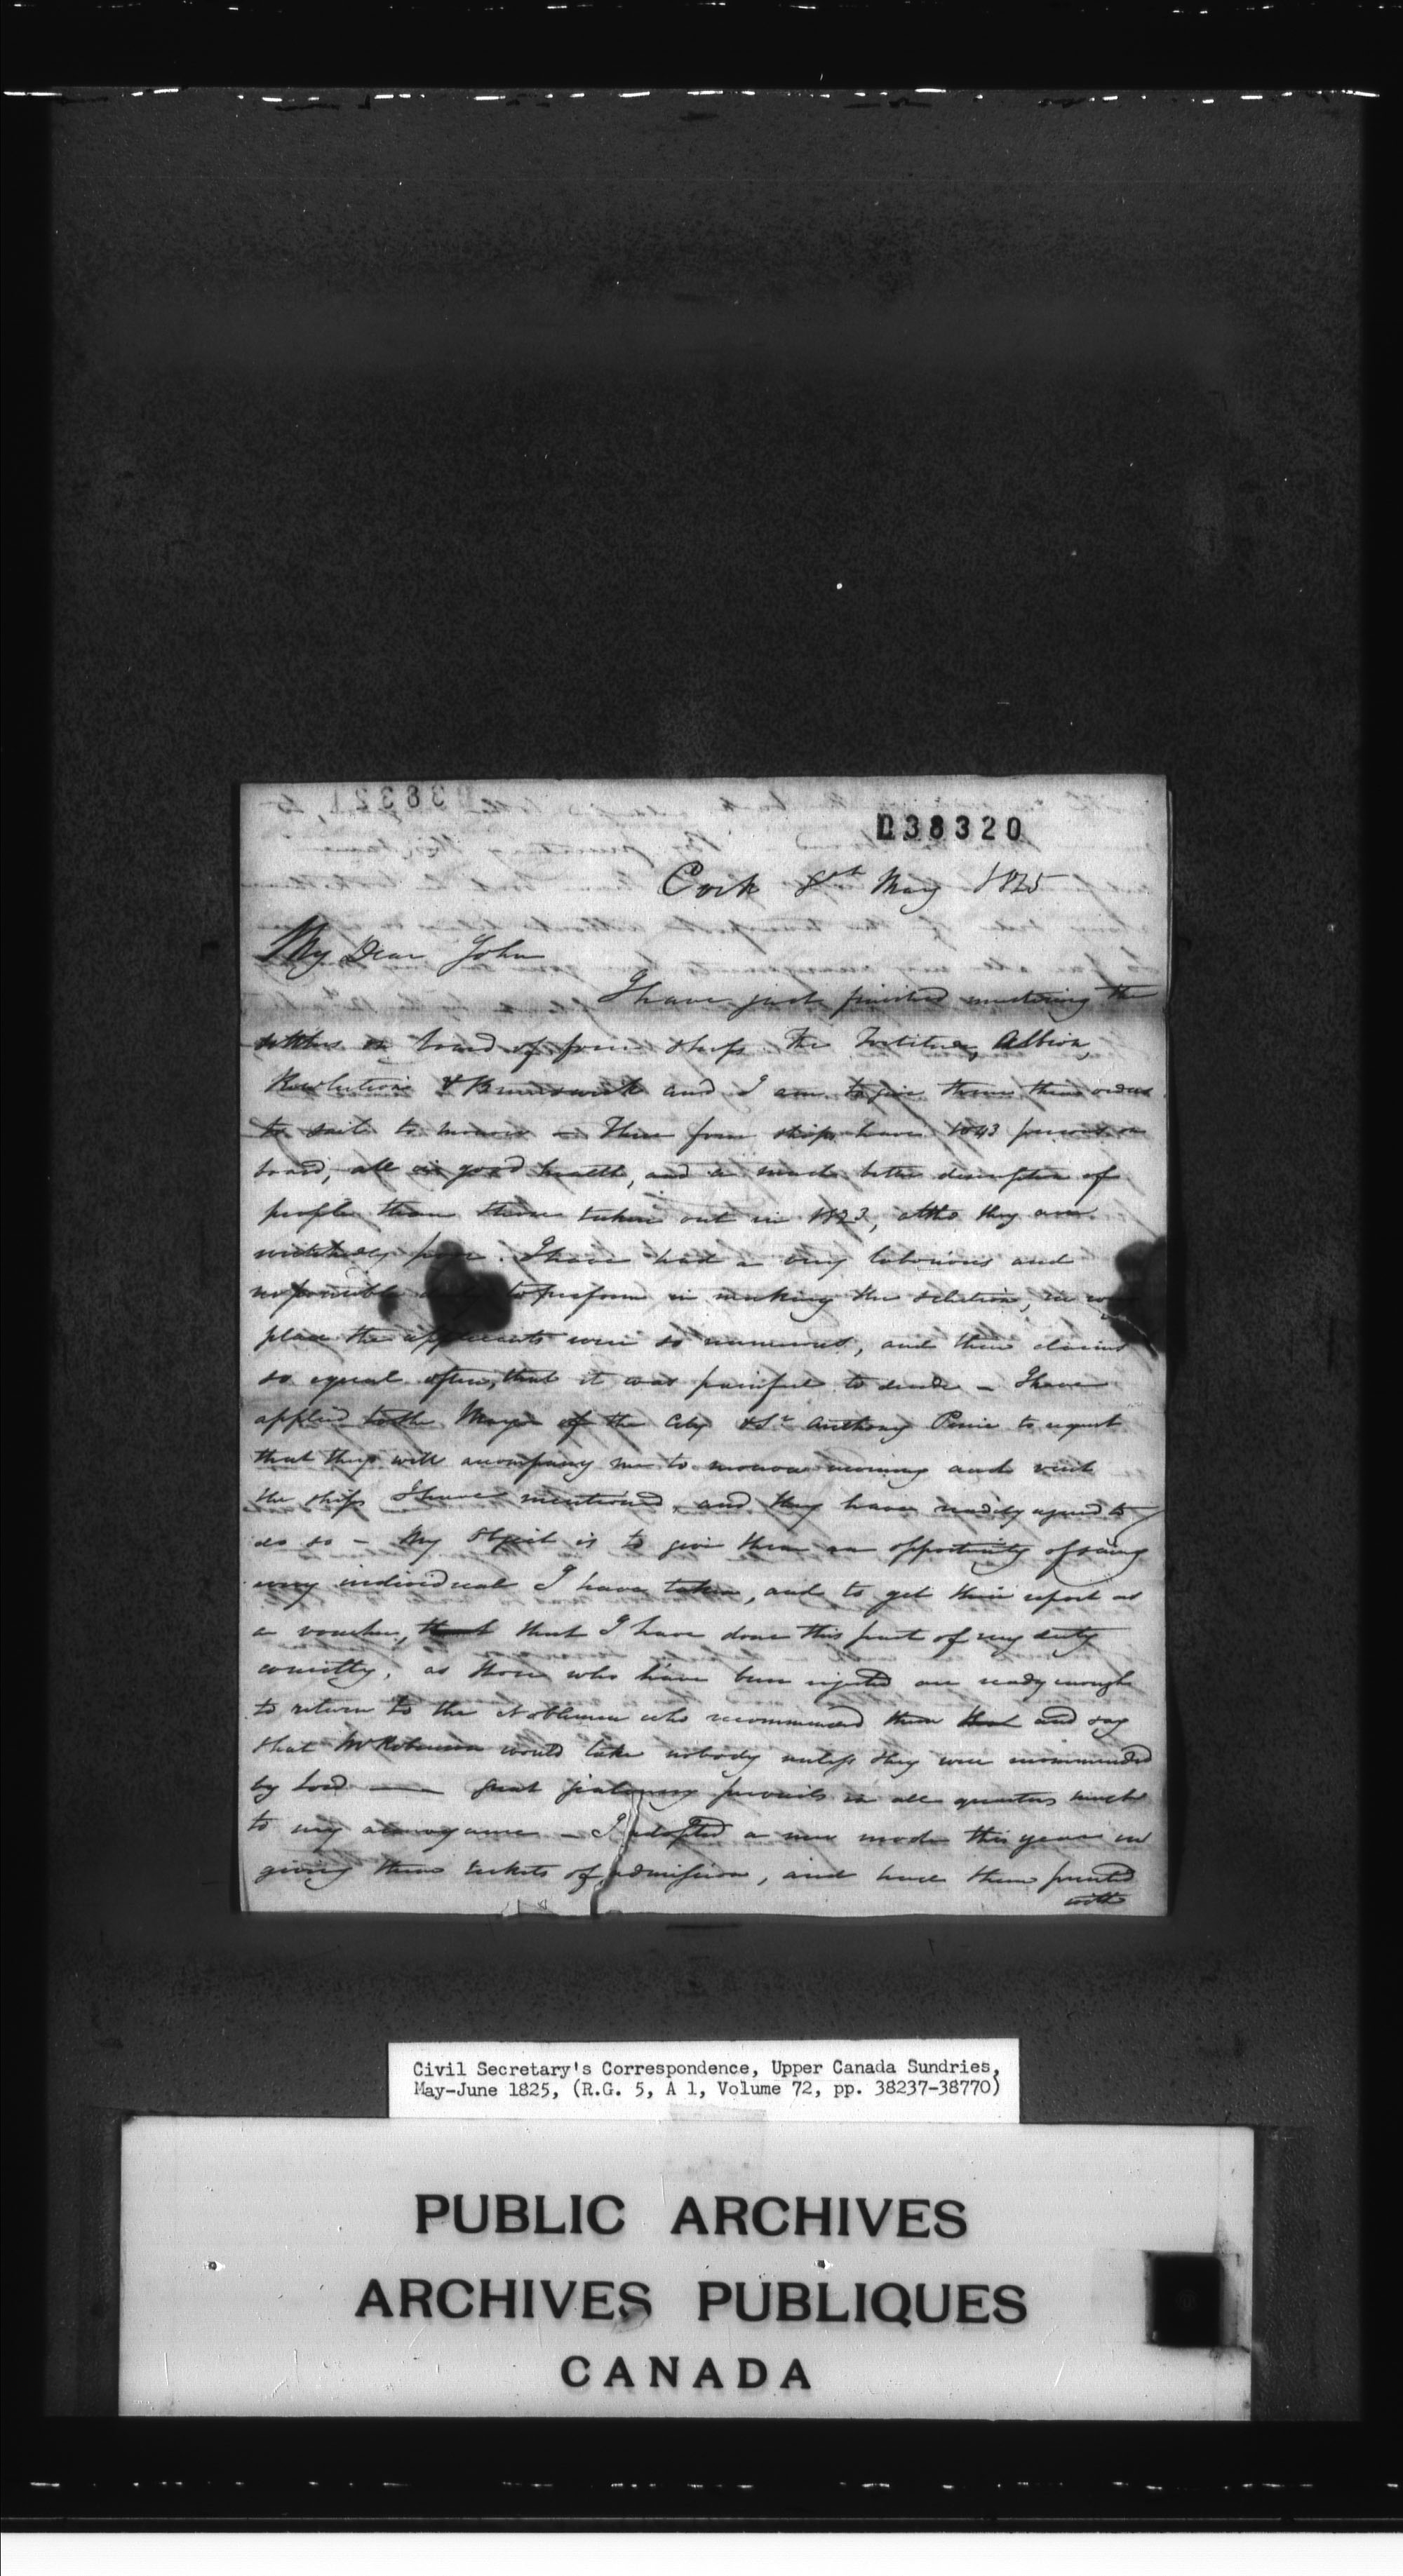 D38320
Cork 8th May 1825
My Dear John
I have just finished mustering the
settlers on board of four ships. The Fortitude, Albion,
Resolution & Brunswick and I am to give them their orders
to sail to morrow — These four ships have 1043 persons on
board, all in good health, and a much better description of
people than those taken out in 1823, altho they are
wretchedly poor. I have had a very laborious and
responsible duty to perform in making the selection, in every
place the applicants were so numerous, and their claims
so equal often, that it was painful to decide — I have
applied to the Mayor of the City & Sr Anthony Perrier to request
that they will accompany me to morrow morning and visit
the ships I have mentioned, and they have readily agreed to
do so — My object is to give them an opportunity of seeing
every individual I have taken, and to get their report as
a voucher, that that I have done this part of my duty
correctly, as those who have been rejected are ready enough
to return to the Noblemen who recommended them that and say
that Mr Robinson would take nobody unless they were recommended
by Lord —— great jealousy prevails in all quarters much
to my annoyance — I adopted a new mode this year in
giving them tickets of admission, and have them printed
with
Civil Secretary's Correspondence, Upper Canada Sundries,
May-June 1825, (R.G. 5, A 1, Volume 72, pp. 38237-38770)
PUBLIC ARCHIVES
ARCHIVES PUBLIQUES
CANADA